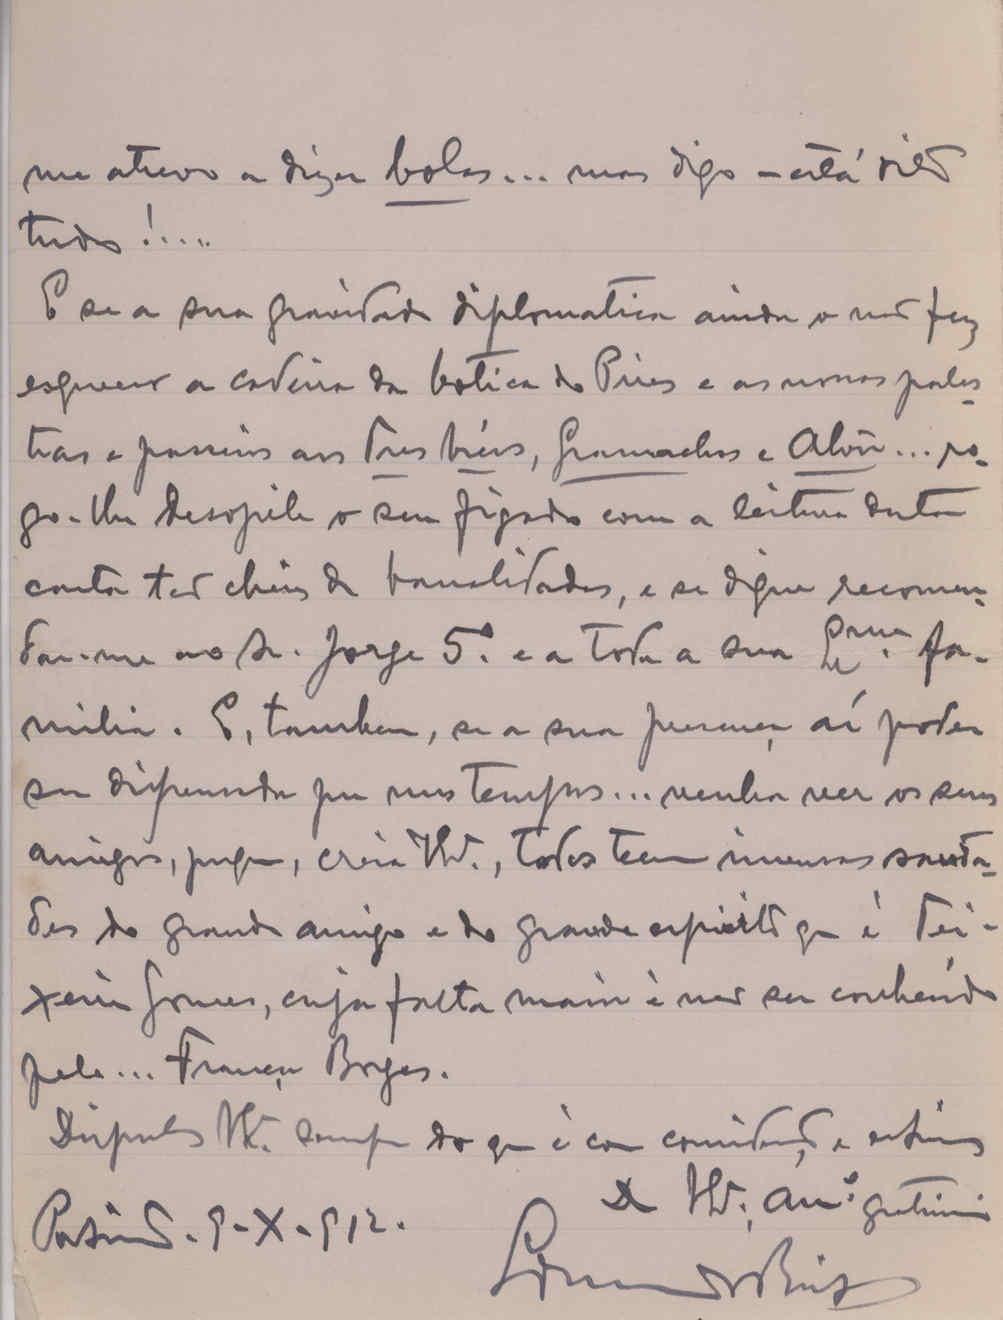 me atrevo a dizer bolas... mas digo - está dito
tudo!....
E se a sua gravidade diplomatica ainda o não fez
esquecer a cadeira da botica do Pires e as nossas pales-
tras e passeios aos Tres bicos, Gramachos e Alvôr... ro-
go-lhe desopile o seu figado com a leitura desta
carta tão cheia de banalidades, e se digne recomen-
dar-me ao Sr. Jorge 5.º e a toda a sua Ex.ma fa-
milia. E, tambem, se a sua presença aí poder
ser dispensada por uns tempos... venha ver os seus
amigos, porque, creia V., todos teem imensas sauda-
des do grande amigo e do grande espirito que é Tei-
xeira Gomes, cuja falta maior é não ser conhecido
pelo... França Borges.
Disponha V. sempre do que é com consideração e estima
De V., am.º gratissimo
Portimão. 9-X-912.